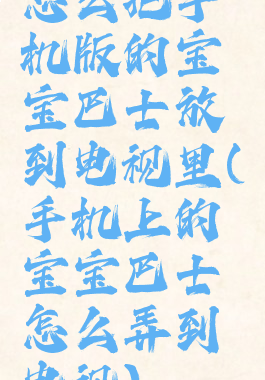 怎么把手
机版的宝
宝巴士放
到电视里(
手机上的
宝宝巴士
怎么弄到
电视)